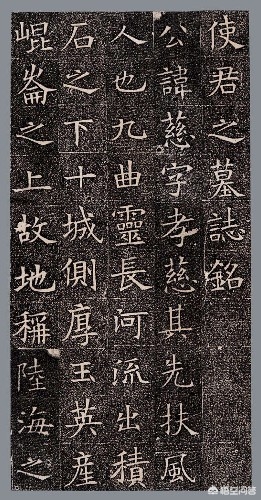 使君之墓誌銘
公諱慈字孝慈其先扶風
人也九曲靈長河流出積
石之下十城側厚玉英産
崐崙之上故地稱陸海之
悟空问答